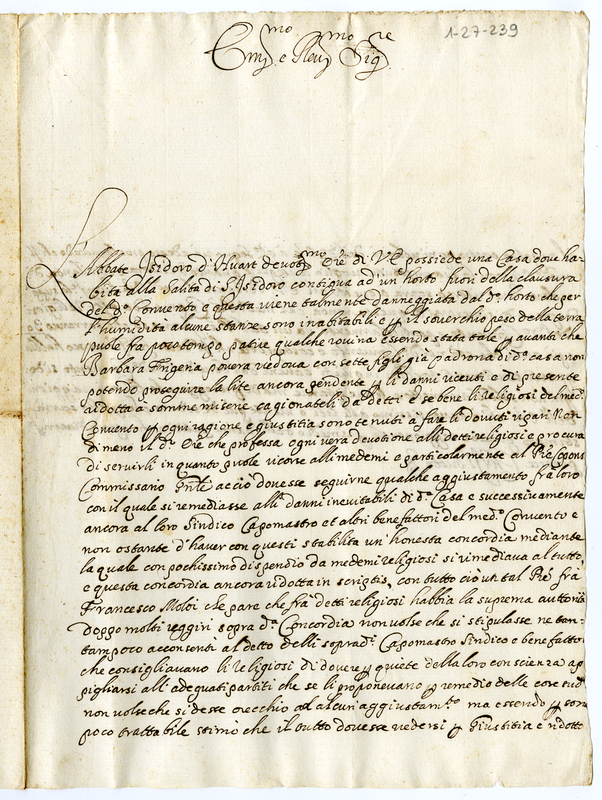 1-27-239
Em.mo e Reu.mo Sig.re
L'Abbate Isidoro d'Huart deuot.mo Ore di VE possiede una Casa doue ha-
bita alla Salita di S. Isidoro contigua ad un'horto fuori della clausura
del d.o Conuento e questa viene talmente danneggiata dal d.o horto che per
l'humidità alcune stanze sono inabitabili e p il souerchio peso della terra
puole fra poco tempo patire qualche rouina essendo stata tale p auanti che
Barbara Frigeria pouera vedoua con sette figli già padrona di d.a casa non
potendo proseguire la lite ancora pendente p li danni riceuti e di presente
ridotta a somme miserie cagionateli da detti e se bene li religiosi del med.o
Conuento p ogni ragione e giustitia sono tenuti à fare li douuti ripari Non
di meno il d.o Ore che professa ogni uera deuotione alli detti religiosi e procura
di seruirli in quanto puole ricorre alli medemi e particolarmente al Pre
Commissario Gnle acciò douesse seguirne qualche aggiustamento frà loro
con il quale si remediasse alli danni ineuitabili di d.a Casa e successiuamente
ancora al loro Sindico Capomastro et altri benefattori del med.o Conuento e
non ostante d'hauer con questi stabilita un'honesta concordia mediante
la quale con pochissimo dispendio da medemi religiosi si rimediaua al tutto,
e questa concordia ancora ridotta in scriptis, con tutto ciò un tal Pre frà
Francesco Moloi che pare che frà detti religiosi habbia la suprema auttorità
doppo molti reggiri sopra d.a Concordia non uolse che si stipulasse ne tan-
tampoco acconsenti al detto delli soprad.i Capomastro Sindico e benefattori
che consigliauano li religiosi di douere p quiete della loro conscienza ap-
pigliarsi all'adequati partiti che se li proponeuano p remedio delle cose sud.e
non uolse che si desse orecchio ad alcun'aggiustam.to ma essendo p
poco trattabile stimò che il tutto douesse uedersi p Giustitia e ridotto